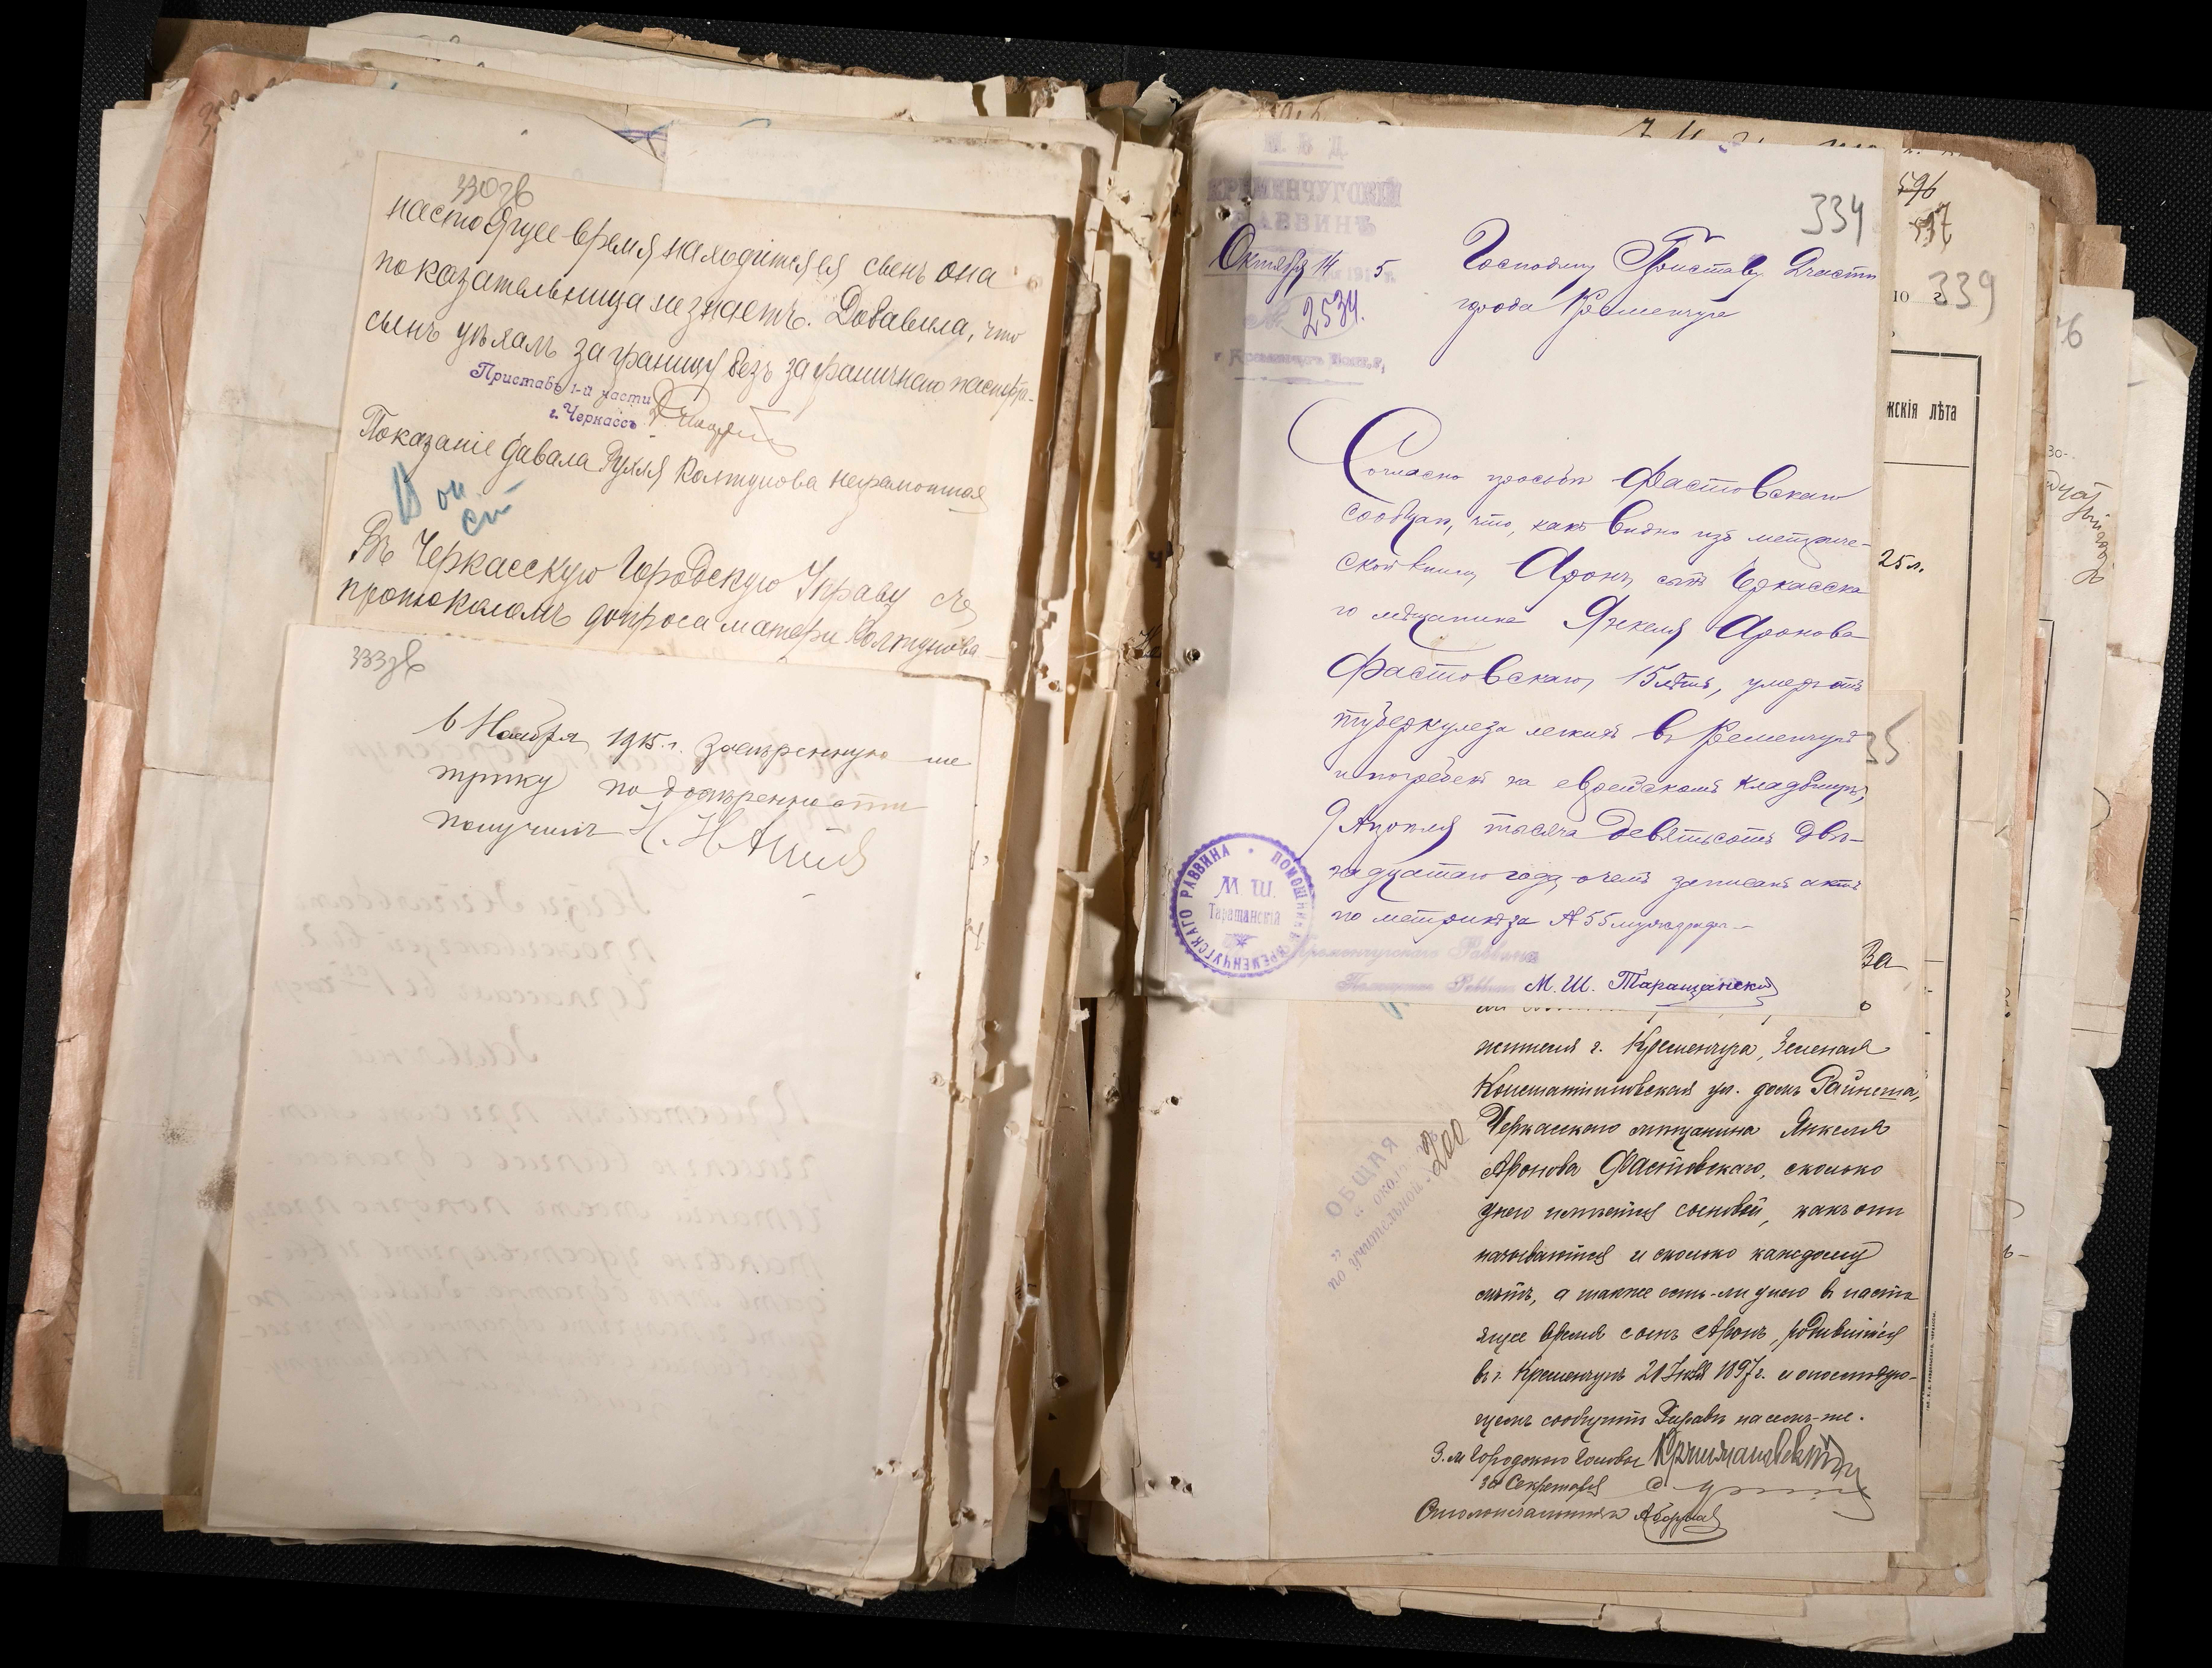 330 зв
настоящее время находится ея сынъ она
показательница не знаетъ. Добавила, что
сынъ уѣхалъ за границу безъ заграничнаго паспорта.
Приставъ 1-й части
г. Черкассъ
Показаніе давала Рухля Колтунова неграмотная
Въ Черкасскую Городскую Управу съ
протоколомъ допроса матери Колтунова
333 зв
6 Ноября 1915 г. заверенную ме
трику по доверенности
получилъ
М В Д
КРЕМЕНЧУГСКІЙ
РАВВИНЪ
Октября 14 191 5 г.
№ 2534.
г. Кременчугъ Полт. г.
334
Господину Приставу 2 части
города Кременчуга
Согласно просьбы Фастовскаго
сообщаю, что, какъ видно изъ метриче-
ской книги, Аронъ, сынъ Черкасска
го мѣщанина Янкеля Аронова
Фастовскаго, 15 лѣтъ, умеръ отъ
туберкулеза легкихъ въ Кременчугѣ
и погребенъ на еврейскомъ кладбищѣ,
9 Апрѣля тысяча девятьсотъ две-
надцатаго года, о чемъ записанъ актъ
по метрикѣ за № 55 мужского
ПОМОЩНИКЪ КРЕМЕНЧУГСКАГО РАВВИНА
М. Ш.
Таращанскій
Кременчугскаго Раввина
М. Ш. Таращанскій
жителя г. Кременчуга, Зеленая
Константиновская ул. домъ Райнеша,
Черкасскаго мѣщанина Янкеля
Аронова Фастовскаго, сколько
у него имѣется сыновей, какъ они
называются и сколько каждому
лѣтъ, а также есть-ли у него въ насто
ящее время сынъ Аронъ, родившійся
въ г. Кременчугѣ 21 1897 г. и о послѣдую-
щемъ сообщить Управѣ на семъ-же.
З. м. Городского Головы
За Секретаря
Столоначальникъ
ОБЩАЯ
200
596
597
339
жскія лѣта
25 л.
За
35